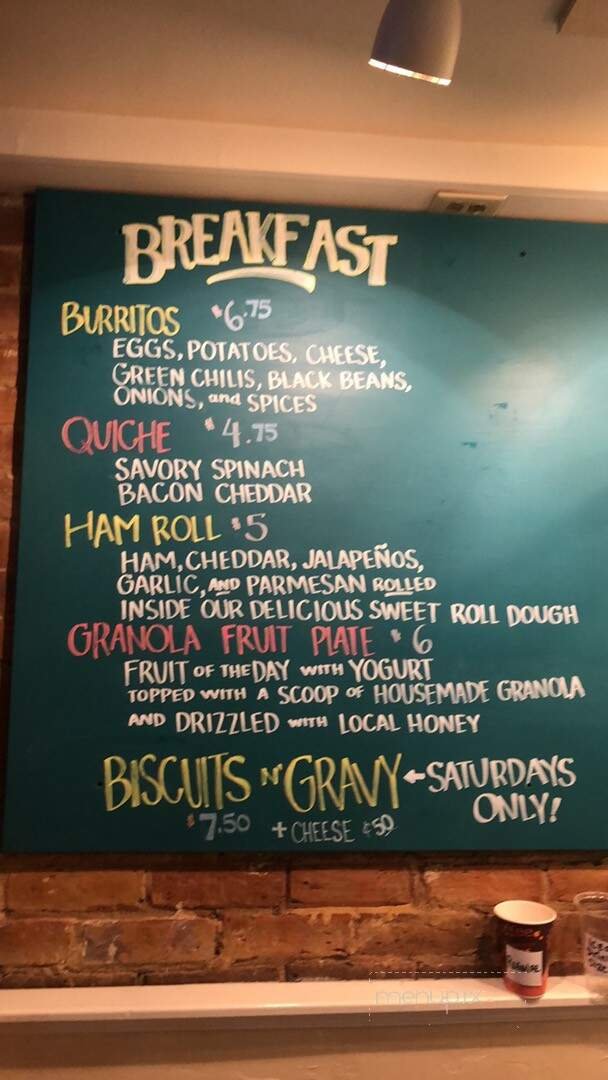 BREAKFAST
BURRITOS $6.75
EGGS, POTATOES, CHEESE,
GREEN CHILIS, BLACK BEANS,
ONIONS, and SPICES
QUICHE $4.75
SAVORY SPINACH
BACON CHEDDAR
HAM ROLL $5
HAM, CHEDDAR, JALAPEÑOS,
GARLIC, AND PARMESAN ROLLED
INSIDE OUR DELICIOUS SWEET ROLL DOUGH
GRANOLA FRUIT PLATE $6
FRUIT OF THE DAY WITH YOGURT
TOPPED WITH A SCOOP OF HOUSEMADE GRANOLA
AND DRIZZLED WITH LOCAL HONEY
BISCUITS N' GRAVY ← SATURDAYS
ONLY!
$7.50 + CHEESE ¢50
menupix